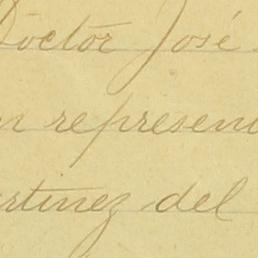 Doctor José
n represen
rtinez del